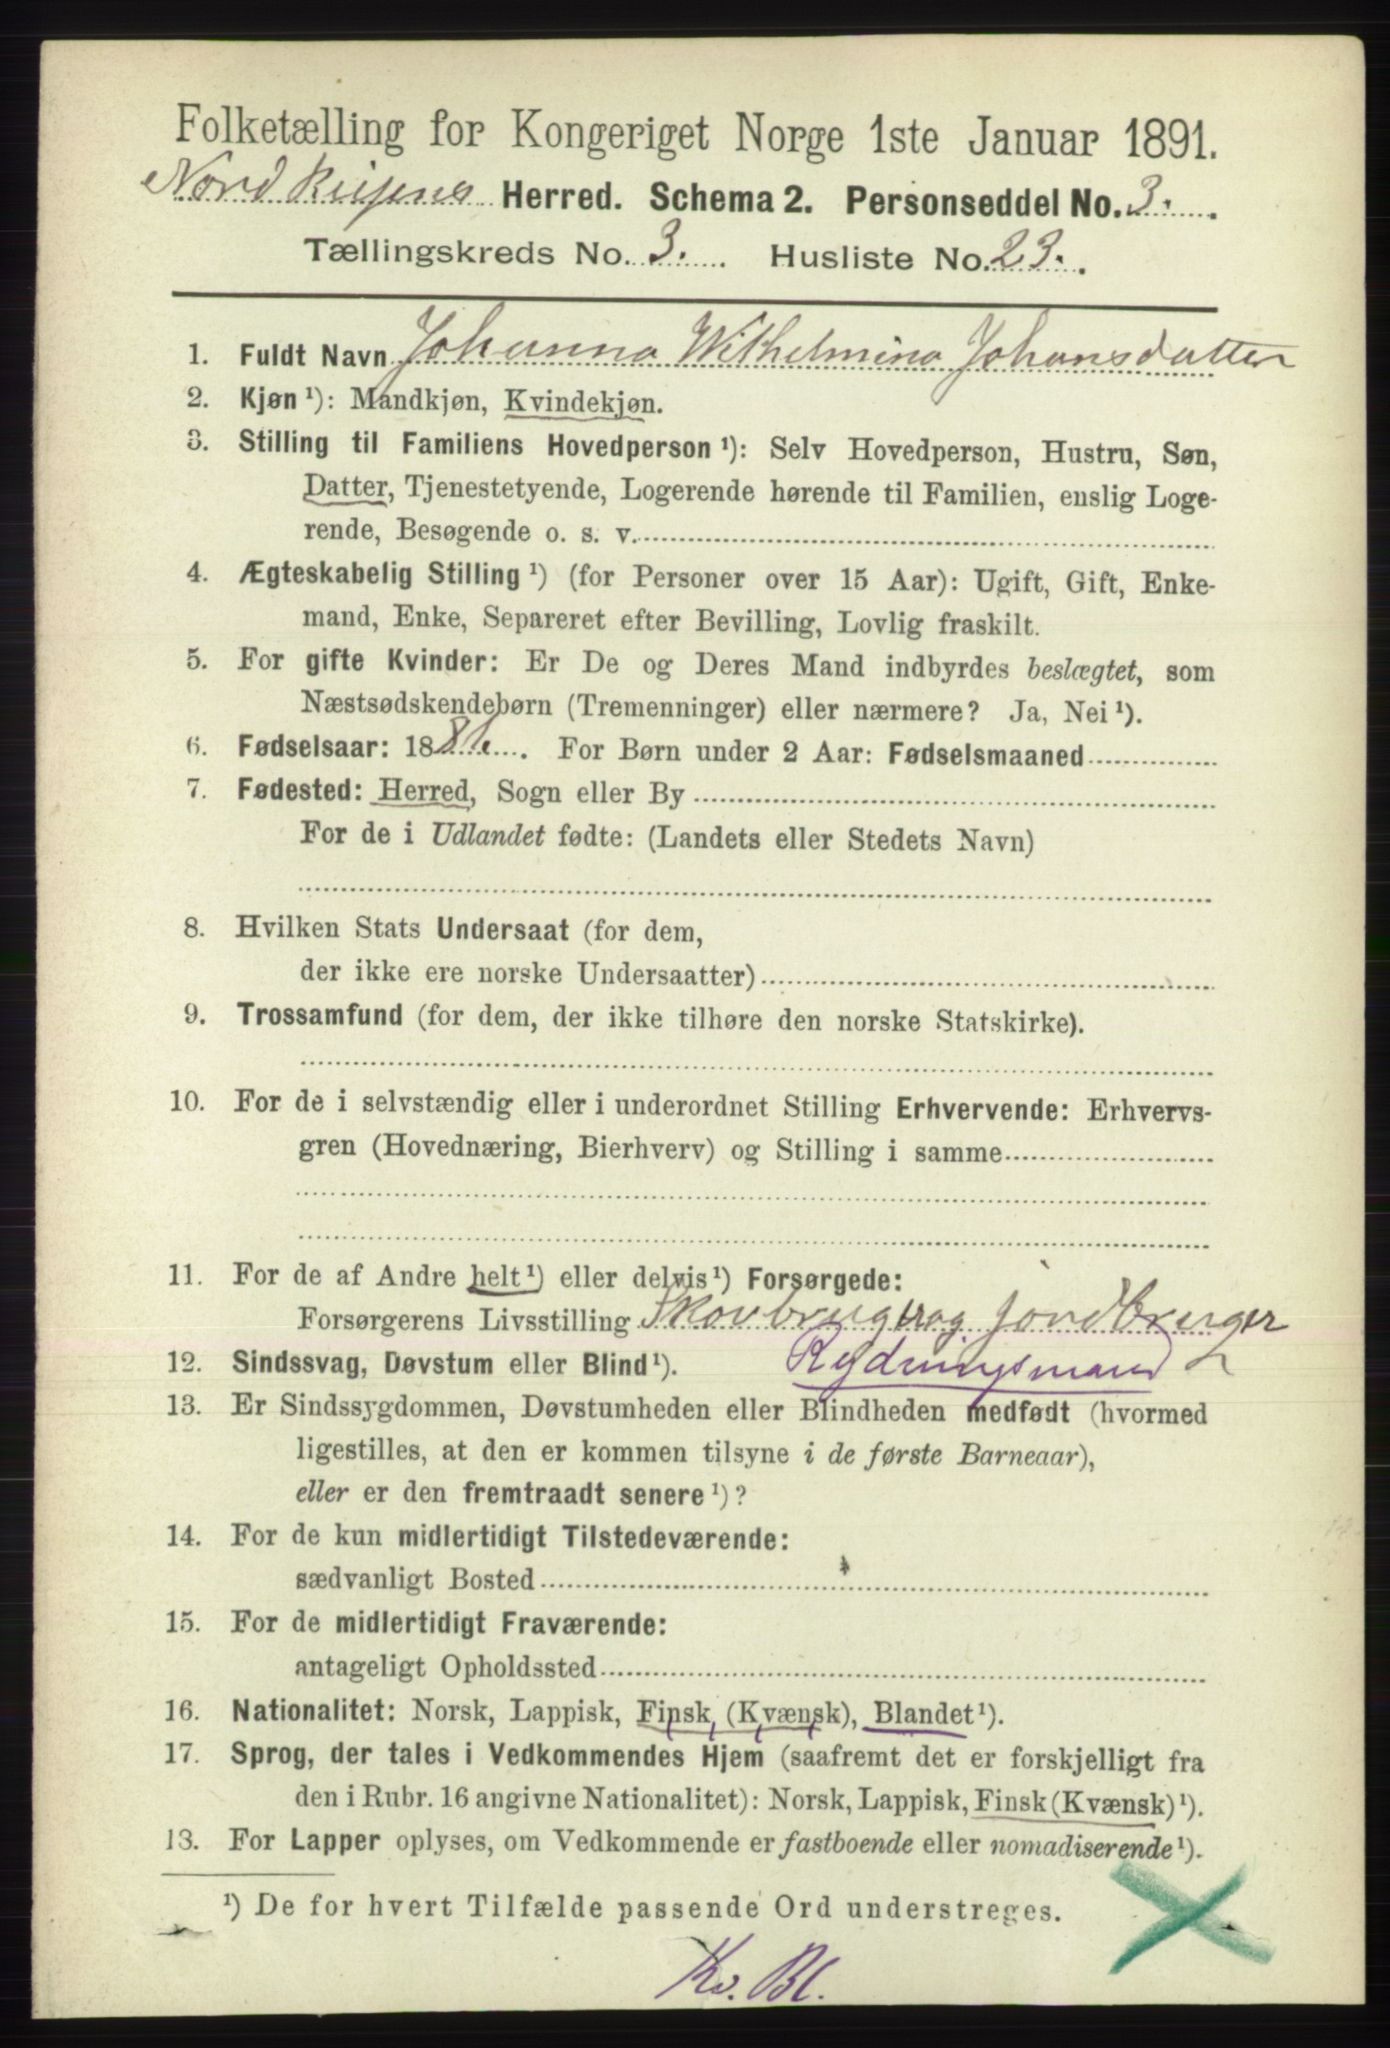 Folketælling for Kongeriget Norge 1ste Januar 1891.
Nordreisens Herred. Schema 2. Personseddel No. 3.
Tællingskreds No. 3. Husliste No. 23.
1. Fuldt Navn Johanna Wilhelmina Johansdatter
2. Kjøn ¹): Mandkjøn, Kvindekjøn.
3. Stilling til Familiens Hovedperson ¹): Selv Hovedperson, Hustru, Søn,
Datter, Tjenestetyende, Logerende hørende til Familien, enslig Loge-
rende, Besøgende o. s. v.
4. Ægteskabelig Stilling ¹) (for Personer over 15 Aar): Ugift, Gift, Enke-
mand, Enke, Separeret efter Bevilling, Lovlig fraskilt.
5. For gifte Kvinder: Er De og Deres Mand indbyrdes beslægtet, som
Næstsødskendebørn (Tremenninger) eller nærmere? Ja, Nei ¹).
6. Fødselsaar: 1886. For Børn under 2 Aar: Fødselsmaaned
7. Fødested: Herred, Sogn eller By
For de i Udlandet fødte: (Landets eller Stedets Navn)
8. Hvilken Stats Undersaat (for dem,
der ikke ere norske Undersaatter)
9. Trossamfund (for dem, der ikke tilhøre den norske Statskirke).
10. For de i selvstændig eller i underordnet Stilling Erhvervende: Erhvervs-
gren (Hovednæring, Bierhverv) og Stilling i samme
11. For de af Andre helt ¹) eller delvis ¹) Forsørgede:
Forsørgerens Livsstilling Skovbruger og jordbruger
12. Sindssvag, Døvstum eller Blind ¹). Rydningsmand
13. Er Sindssygdommen, Døvstumheden eller Blindheden medfødt (hvormed
ligestilles, at den er kommen tilsyne i de første Barneaar),
eller er den fremtraadt senere ¹)?
14. For de kun midlertidigt Tilstedeværende:
sædvanligt Bosted
15. For de midlertidigt Fraværende:
antageligt Opholdssted
16. Nationalitet: Norsk, Lappisk, Finsk, (Kvænsk), Blandet ¹).
17. Sprog, der tales i Vedkommendes Hjem (saafremt det er forskjelligt fra
den i Rubr. 16 angivne Nationalitet): Norsk, Lappisk, Finsk (Kvænsk) ¹).
13. For Lapper oplyses, om Vedkommende er fastboende eller nomadiserende ¹).
¹) De for hvert Tilfælde passende Ord understreges.
Kv. Bl.